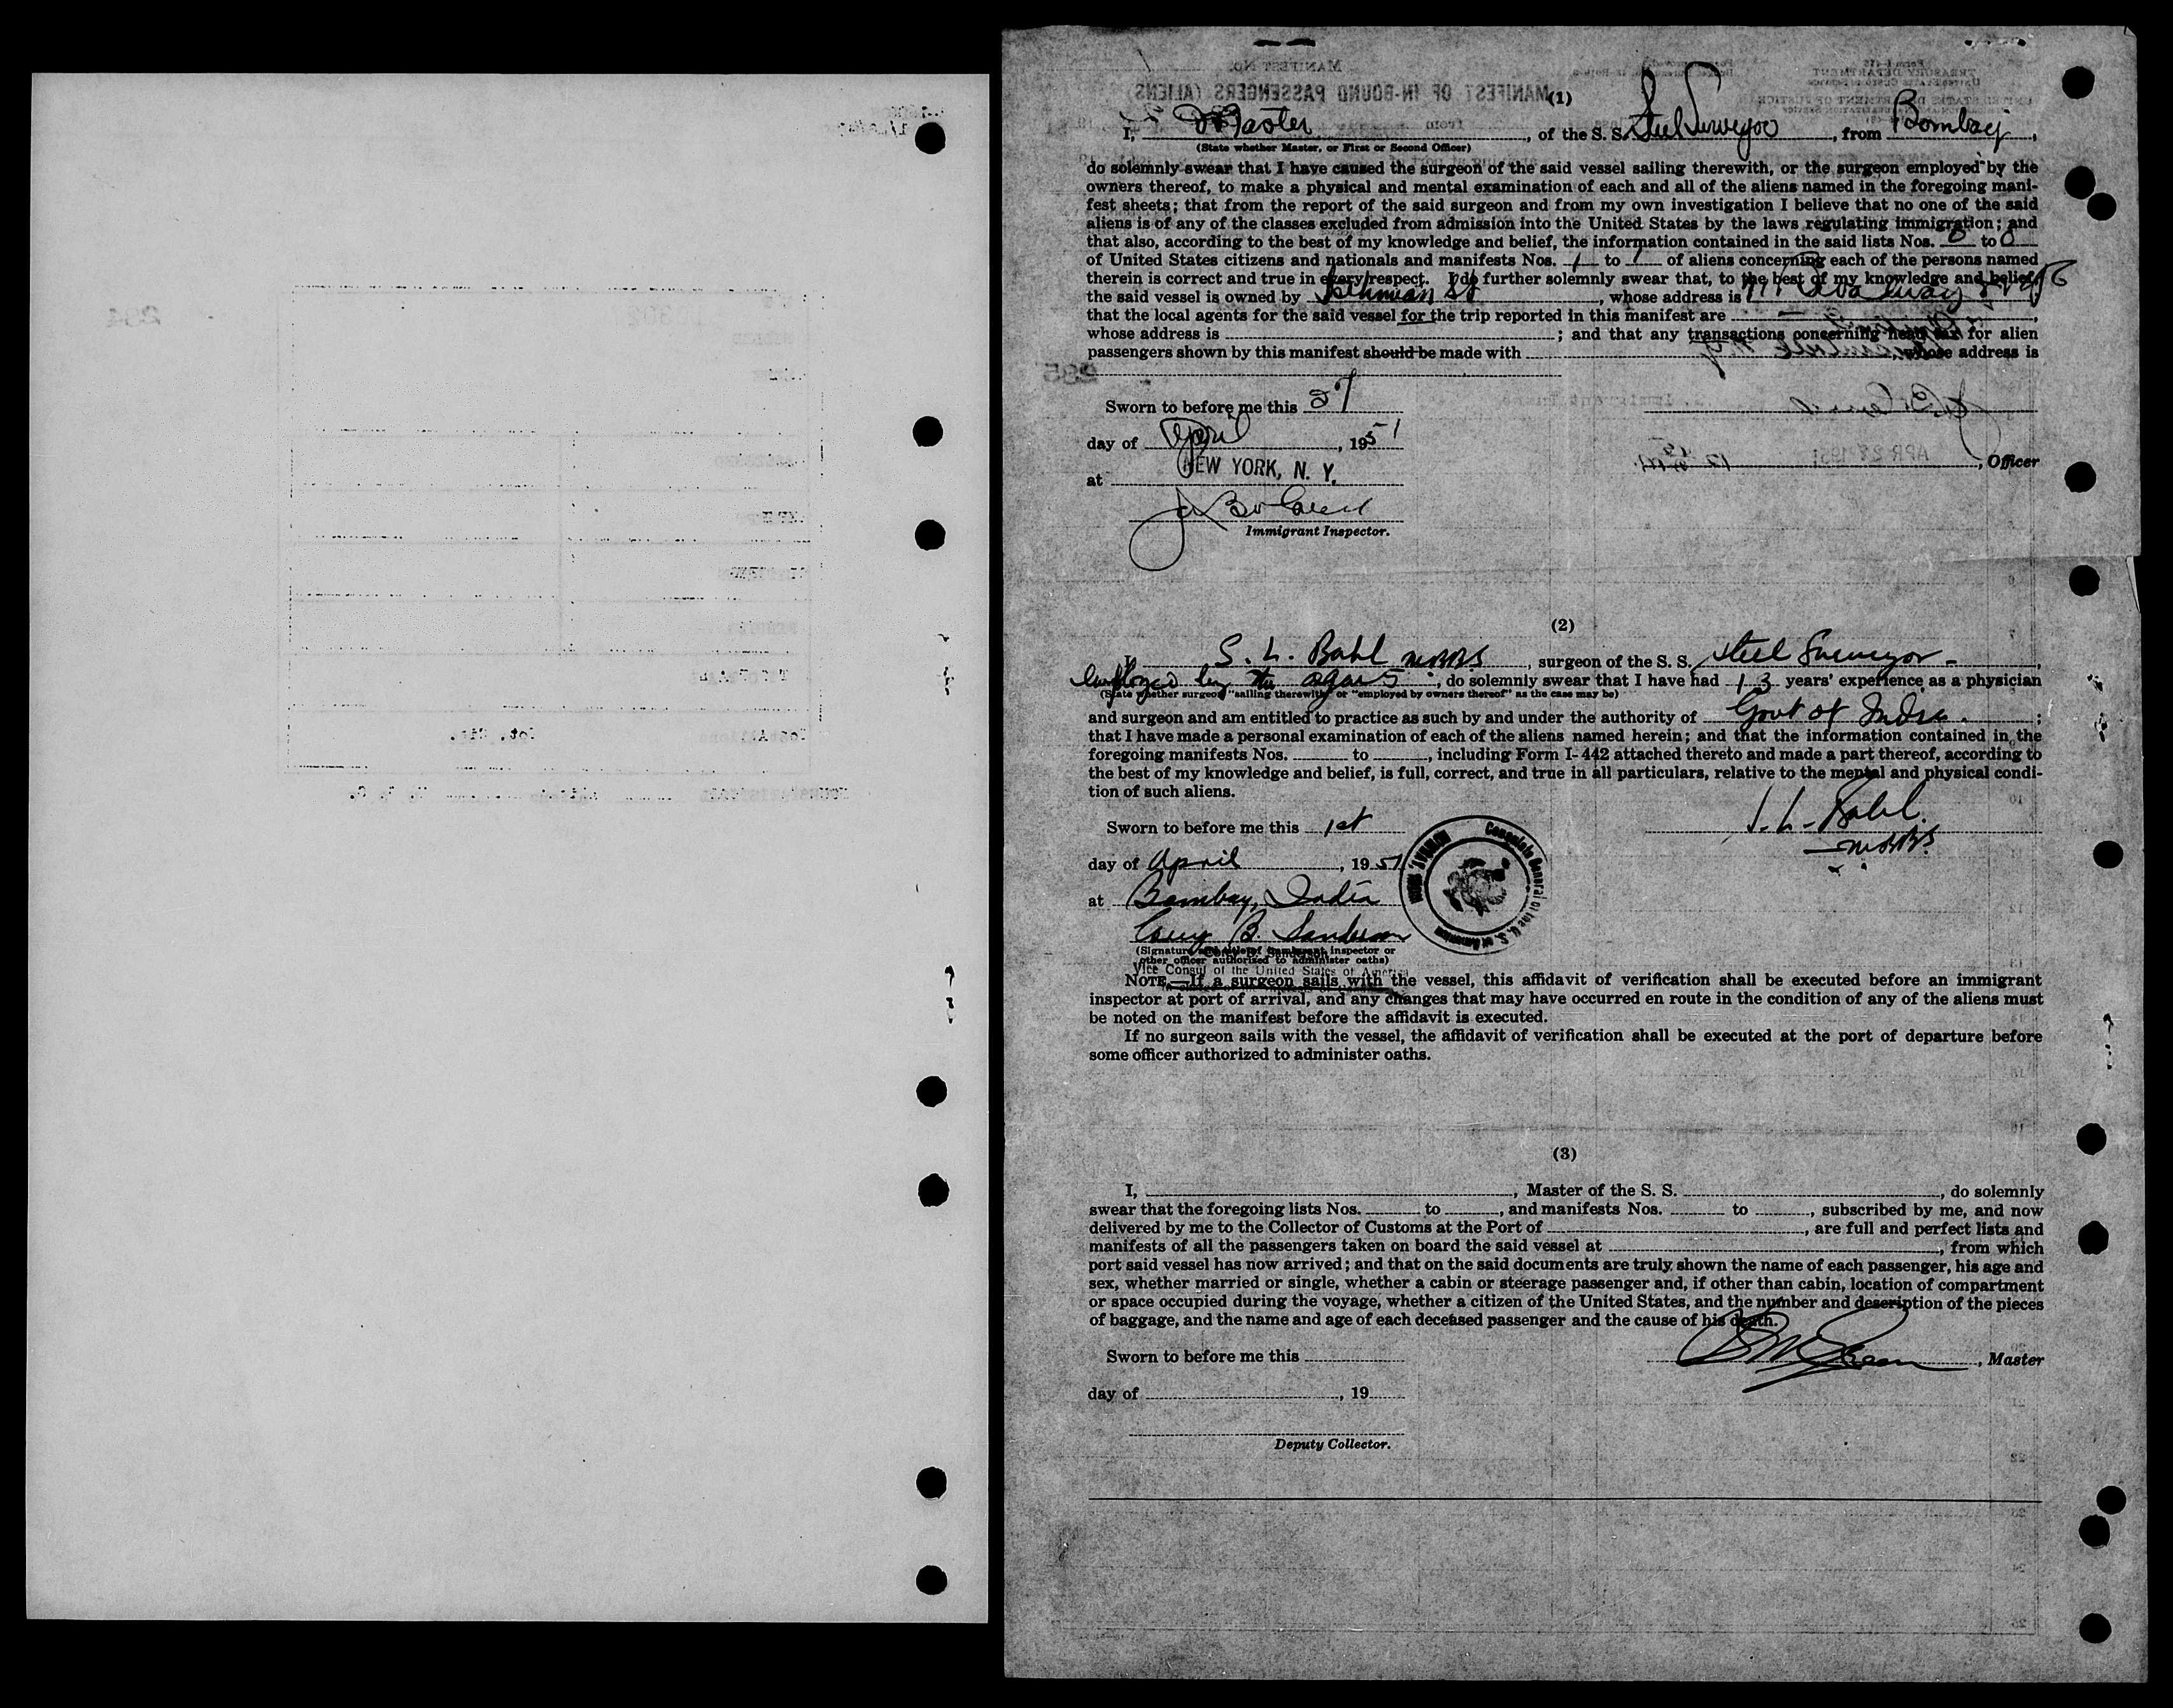 (1)
I, Master, of the S. S. Steel Surveyor, from Bombay,
(State whether Master, or First or Second Officer)
do solemnly swear that I have caused the surgeon of the said vessel sailing therewith, or the surgeon employed by the
owners thereof, to make a physical and mental examination of each and all of the aliens named in the foregoing mani-
fest sheets; that from the report of the said surgeon and from my own investigation I believe that no one of the said
aliens is of any of the classes excluded from admission into the United States by the laws regulating immigration; and
that also, according to the best of my knowledge and belief, the information contained in the said lists Nos. 0 to 0
of United States citizens and nationals and manifests Nos. 1 to 1 of aliens concerning each of the persons named
therein is correct and true in every respect. I do further solemnly swear that, to the best of my knowledge and belief,
the said vessel is owned by Isthmian SS, whose address is
that the local agents for the said vessel for the trip reported in this manifest are
whose address is ; and that any transactions concerning head tax for alien
passengers shown by this manifest should be made with , whose address is
Sworn to before me this 27
day of April, 1951
, Officer
at NEW YORK, N. Y.
Immigrant Inspector.
(2)
I, S. L. Bahl MBBS, surgeon of the S. S. Steel Surveyor
employed by the, do solemnly swear that I have had 13 years' experience as a physician
(State whether surgeon "sailing therewith" or "employed by owners thereof" as the case may be)
and surgeon and am entitled to practice as such by and under the authority of Govt of India ;
that I have made a personal examination of each of the aliens named herein; and that the information contained in the
foregoing manifests Nos. to , including Form I-442 attached thereto and made a part thereof, according to
the best of my knowledge and belief, is full, correct, and true in all particulars, relative to the mental and physical condi-
tion of such aliens.
S. L. Bahl.
MBBS.
Sworn to before me this 1st
day of April, 1951
at Bombay, India
B. Sanderson
Consulate General of the U. S. of America
(Signature and title of immigrant inspector or
other officer authorized to administer oaths)
Vice Consul of the United States of America
NOTE.—If a surgeon sails with the vessel, this affidavit of verification shall be executed before an immigrant
inspector at port of arrival, and any changes that may have occurred en route in the condition of any of the aliens must
be noted on the manifest before the affidavit is executed.
If no surgeon sails with the vessel, the affidavit of verification shall be executed at the port of departure before
some officer authorized to administer oaths.
(3)
I, , Master of the S. S. , do solemnly
swear that the foregoing lists Nos. to , and manifests Nos. to , subscribed by me, and now
delivered by me to the Collector of Customs at the Port of , are full and perfect lists and
manifests of all the passengers taken on board the said vessel at , from which
port said vessel has now arrived; and that on the said documents are truly shown the name of each passenger, his age and
sex, whether married or single, whether a cabin or steerage passenger and, if other than cabin, location of compartment
or space occupied during the voyage, whether a citizen of the United States, and the number and description of the pieces
of baggage, and the name and age of each deceased passenger and the cause of his death.
Sworn to before me this
, Master
day of , 19
Deputy Collector.